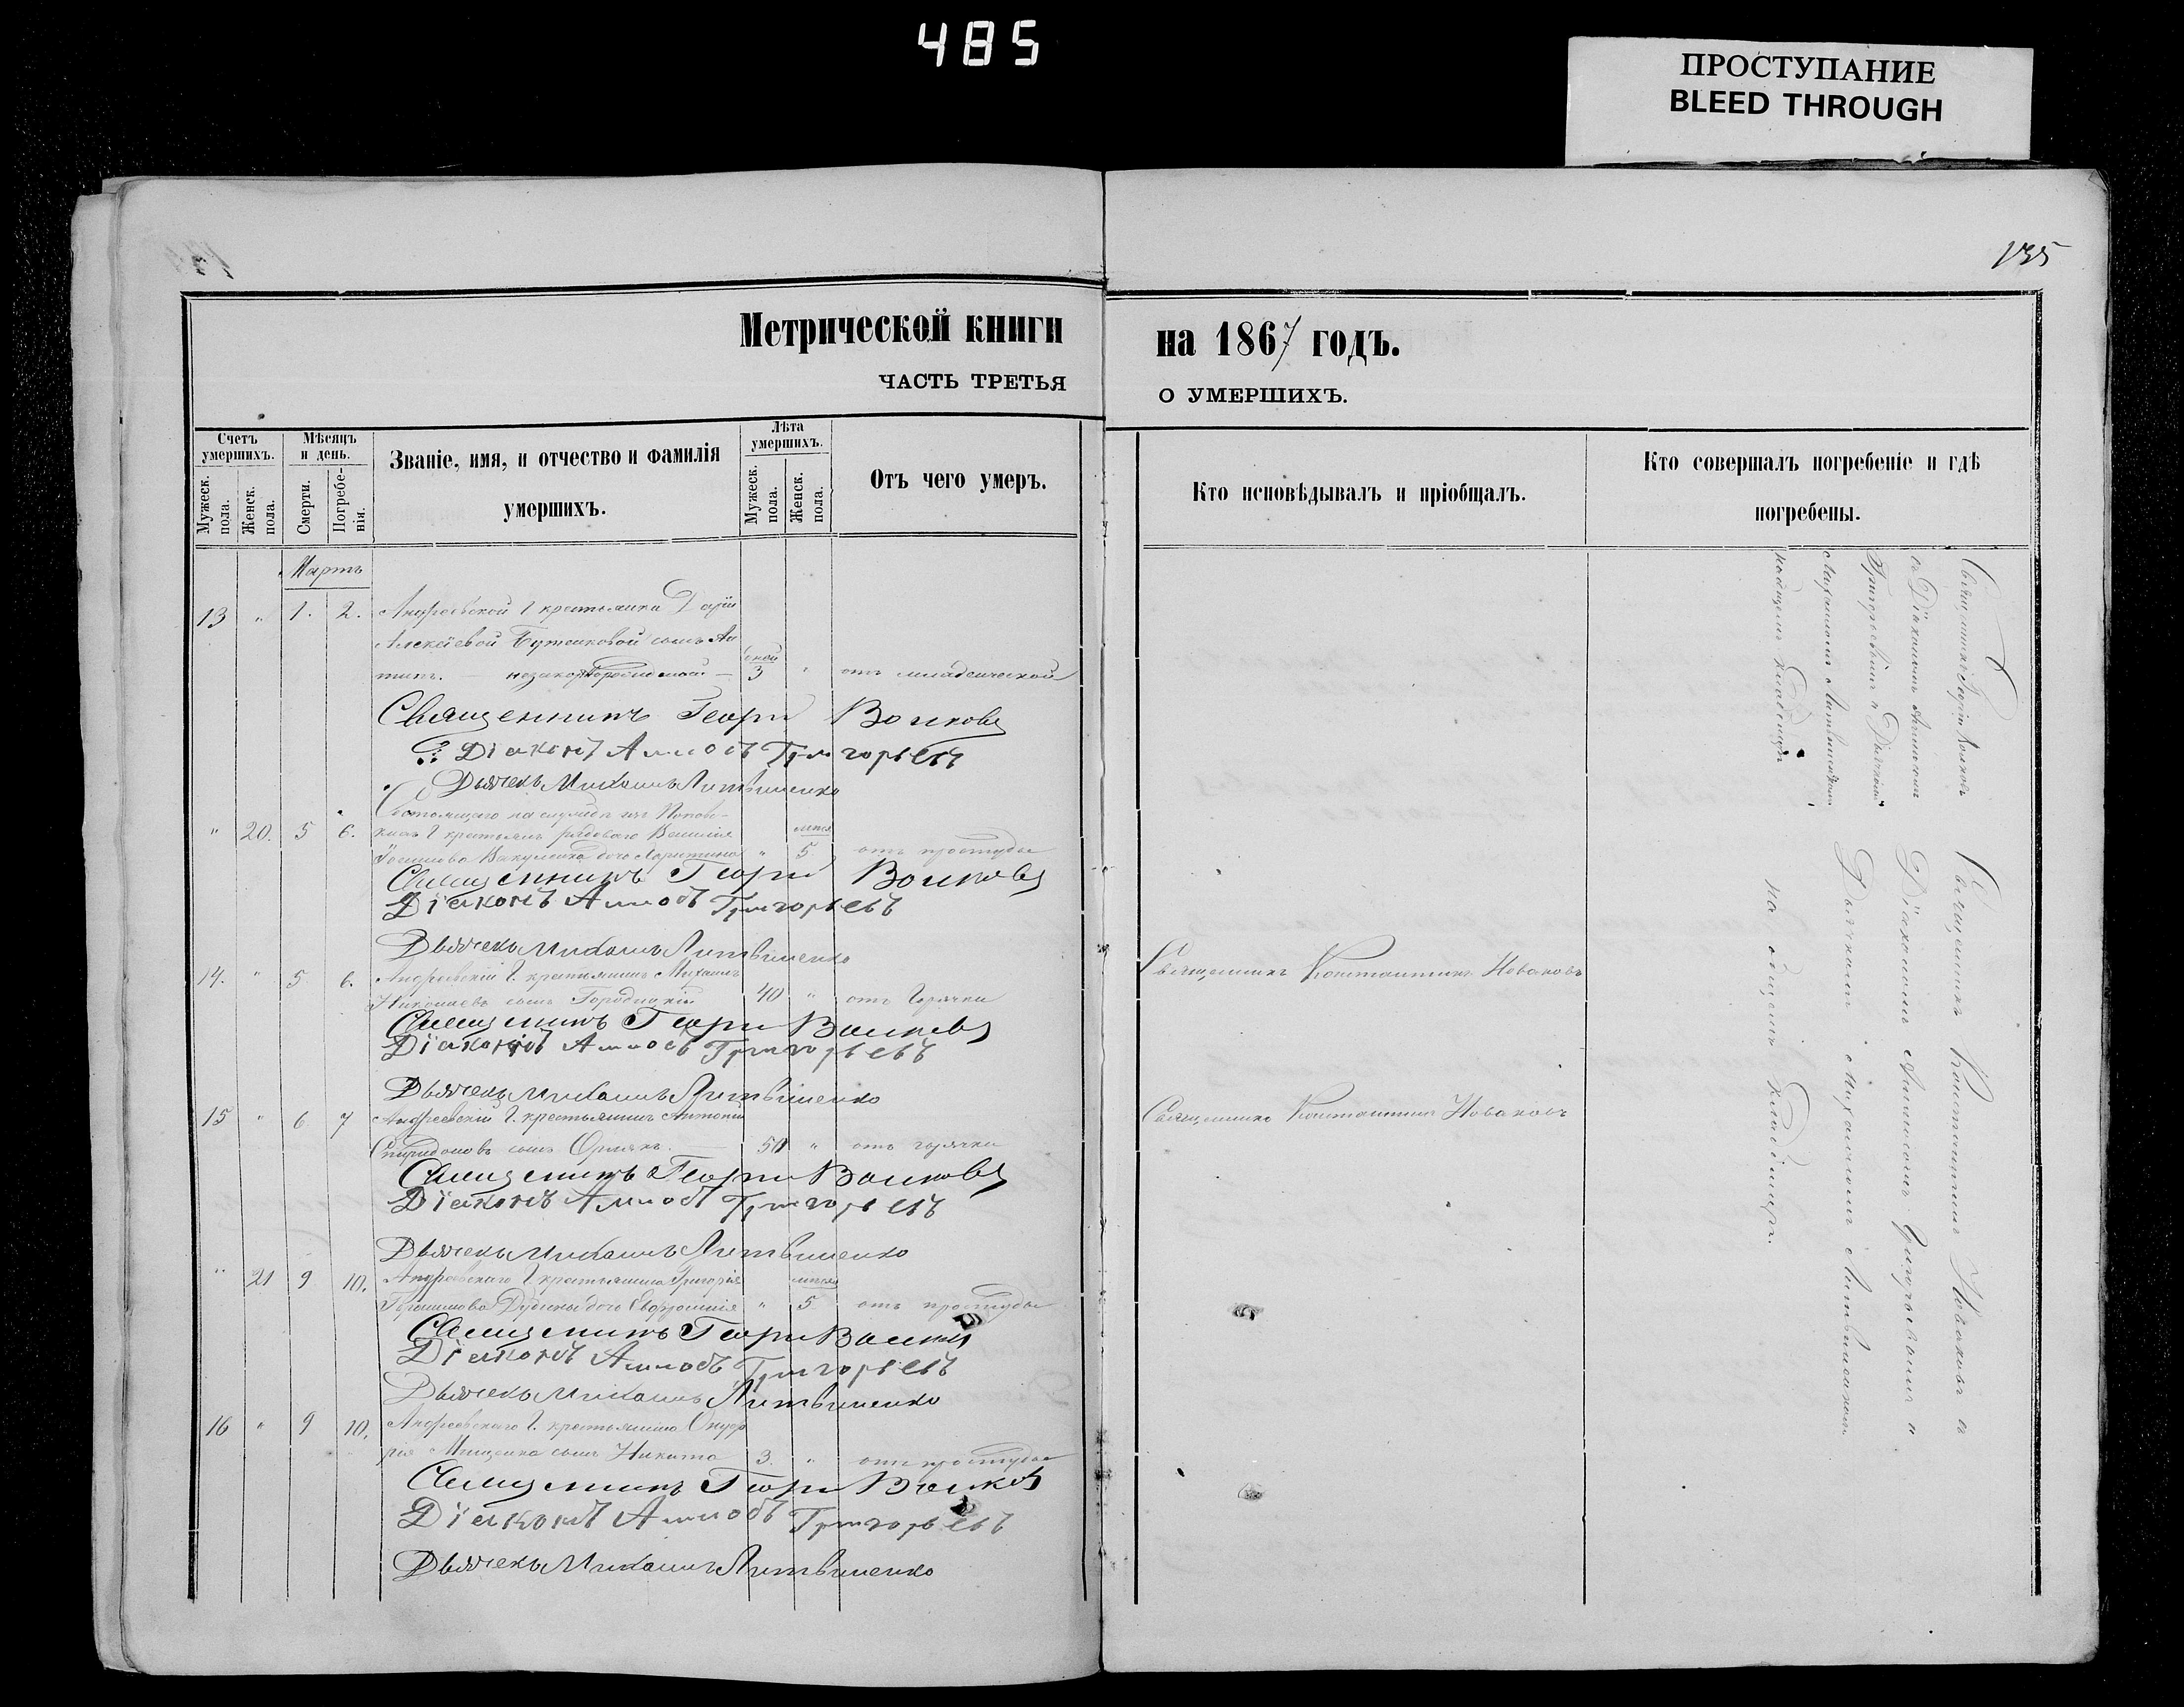 485
ПРОСТУПАНИЕ
BLEED THROUGH
135
Метрической книги
на 1867 годъ.
ЧАСТЬ ТРЕТЬЯ
О УМЕРШИХЪ.
Счетъ умершихъ.
Мѣсяцъ и день.
Званіе, имя, и отчество и фамилія умершихъ.
Лѣта умершихъ.
Отъ чего умеръ.
Кто исповѣдывалъ и пріобщалъ.
Кто совершалъ погребеніе и гдѣ погребены.
Мужеск. пола.
Женск. пола.
Смерти.
Погребе-нія.
Мужеск. пола.
Женск. пола.
Мартъ
13 " 1. 2. Андреевской крестьянки Даріи
Алексѣевой сынъ Ан
типъ. — 3 " отъ младенческой
Священникъ Георгій Волковъ
Діаконъ Аммосъ Григорьевъ
Дьячекъ Михаилъ Литвиненко
Состоящаго на службѣ изъ Поповс-
" 20. 5 6. кихъ крестьянъ рядоваго Василія
Вакуленка дочь " 5 отъ простуды
Священникъ Георгій Волковъ
Діаконъ Аммосъ Григорьевъ
Дьячекъ Михаилъ Литвиненко
14. " 5 6. Андреевскій крестьянинъ Михаилъ
Николаевъ сынъ Городицкій 40 " отъ горячки
Священникъ Константинъ Новаковъ
Священникъ Георгій Волковъ
Діаконъ Аммосъ Григорьевъ
Дьячекъ Михаилъ Литвиненко
15 " 6 7 Андреевскій крестьянинъ Антоній
Спиридоновъ сынъ 50 " отъ горячки
Священникъ Константинъ Новаковъ
Священникъ Георгій Волковъ
Діаконъ Аммосъ Григорьевъ
Дьячекъ Михаилъ Литвиненко
" 21 9 10. Андреевскаго крестьянина Григорія
дочь " 5 отъ простуды
Священникъ Георгій Волковъ
Діаконъ Аммосъ Григорьевъ
Дьячекъ Михаилъ Литвиненко
16 " 9 10. Андреевскаго крестьянина Онуф
рія Мищенка сынъ Никита 3. " отъ простуды
Священникъ Георгій Волковъ
Діаконъ Аммосъ Григорьевъ
Дьячекъ Михаилъ Литвиненко
Священникъ Георгій Волковъ
съ Діакономъ Аммосомъ
Григорьевымъ и Дьячкомъ
Михаиломъ Литвиненкомъ
на общемъ кладбищѣ
Священникъ Константинъ Новаковъ съ
Діакономъ Аммосомъ Григорьевымъ и
Дьячкомъ Михаиломъ Литвиненкомъ
на общемъ кладбищѣ.